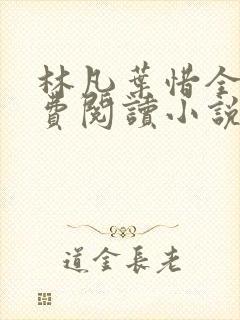 林凡葉惜全
費閱讀小說
道金長老